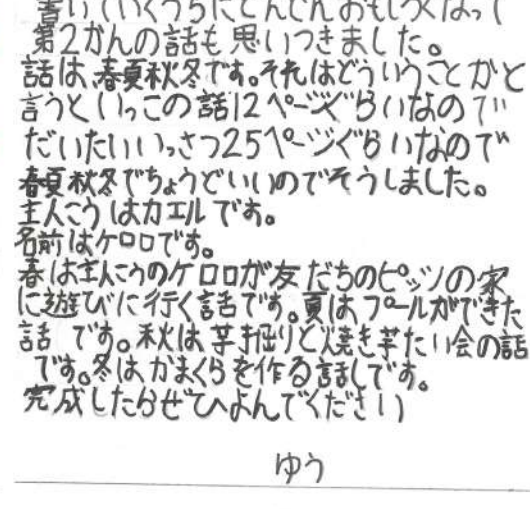 書いていくうちにどんどんおもしろくなって
第2かんの話も思いつきました。
話は春夏秋冬です。それはどういうことかと
言うといっこの話12ページぐらいなので
だいたいいっさつ25ページぐらいなので
春夏秋冬でちょうどいいのでそうしました。
主人こうはカエルです。
名前はケロロです。
春は主人こうのケロロが友だちのピッツの家
に遊びに行く話です。夏はプールができた
話です。秋は芋掘りと焼き芋たい会の話
です。冬はかまくらを作る話しです。
完成したらぜひよんでください
ゆう